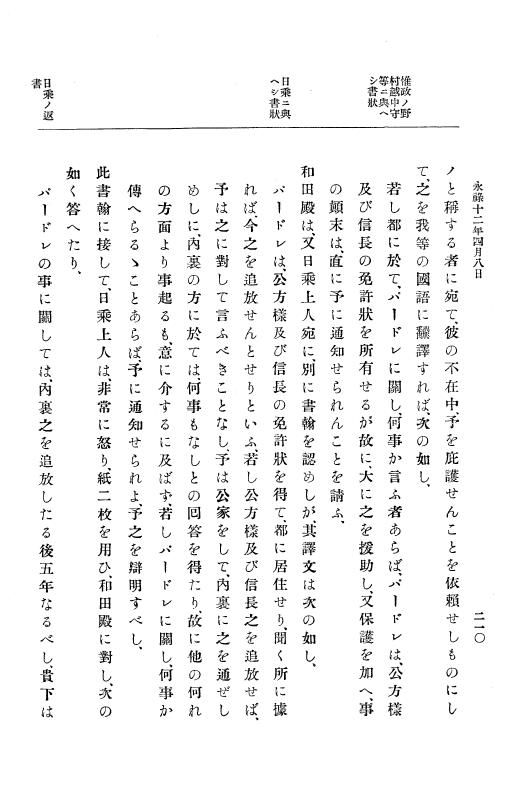 永祿十二年四月八日
二一〇
惟政ノ野
村越中守
等ニ與ヘ
シ書狀
日乘ニ與
ヘシ書狀
日乘ノ返
書
ノと稱する者に宛て、彼の不在中、予を庇護せんことを依賴せしものにし
て、之を我等の國語に飜譯すれば、次の如し、
若し都に於て、パードレに關し、何事か言ふ者あらば、パードレは、公方樣
及び信長の免許狀を所有せるが故に、大に之を援助し、又保護を加へ、事
の顚末は、直に予に通知せられんことを請ふ、
和田殿は、又日乘上人宛に、別に書翰を認めしが、其譯文は次の如し、
パードレは、公方樣及び信長の免許狀を得て、都に居住せり、聞く所に據
れば、今之を追放せんとせりといふ、若し公方樣及び信長之を追放せば、
予は之に對して言ふべきことなし、予は公家をして、內裏に之を通ぜし
めしに、內裏の方に於ては、何事もなしとの回答を得たり、故に他の何れ
の方面より事起るも、意に介するに及ばず、若しパードレに關し、何事か
傳へらるゝことあらば、予に通知せられよ、予之を辯明すべし、
此書翰に接して、日乘上人は、非常に怒り、紙二枚を用ひ、和田殿に對し、次の
如く答へたり、
パードレの事に關しては、內裏之を追放したる後五年なるべし、貴下は